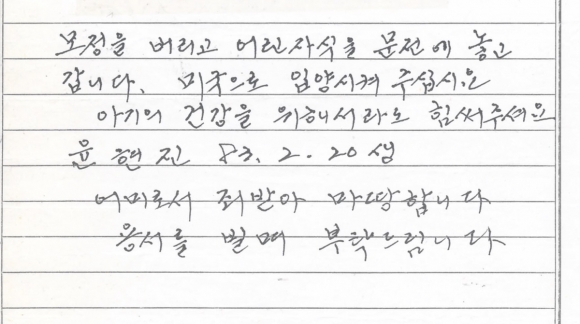 모정을 버리고 어린자식을 문전에 놓고
갑니다. 미국으로 입양시켜 주십시요
아기의 건강을 위해서라도 힘써주셔요
윤현진 83. 2. 20 생
어미로서 죄받아 마땅합니다
용서를 빌며 부탁드립니다